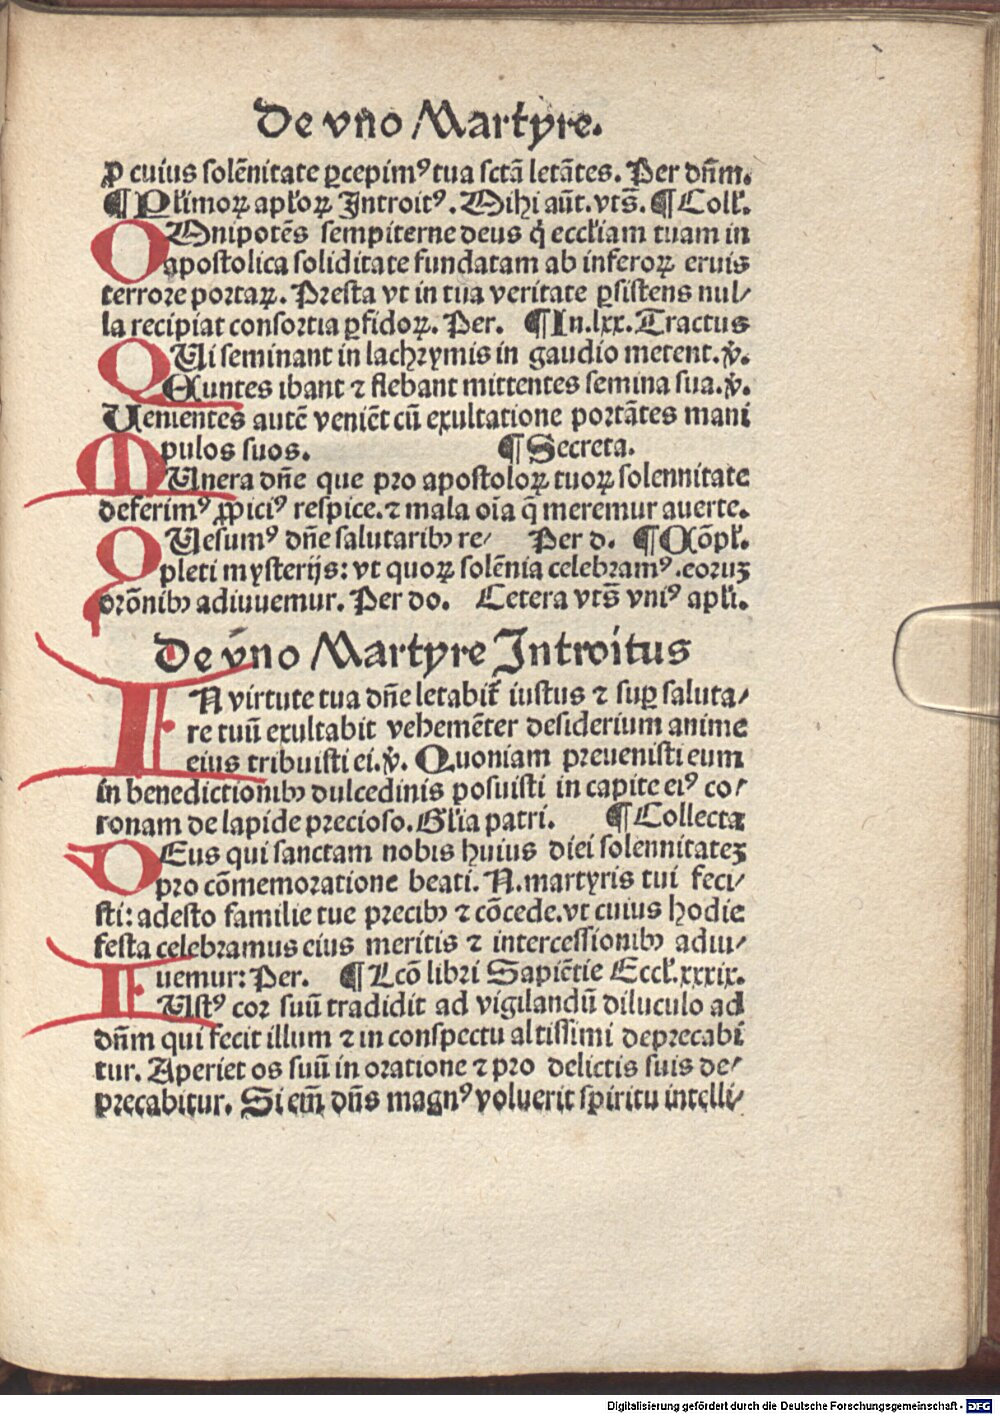 De vno Martyre.
ꝓ cuius solēnitate ꝑcepimꝰ tua sctā letātes. Per dn̄m.
¶ Plīmoꝝ apl̄oꝝ Introitꝰ. Mihi aūt. vts̄. ¶ Coll̄.
OMnipotēs sempiterne deus q̇ eccl̄iam tuam in
apostolica soliditate fundatam ab inferoꝝ eruis
terrore portaꝝ. Presta vt in tua veritate ꝑsistens nul⸗
la recipiat consortia ꝑfidoꝝ. Per. ¶ In.lxx. Tractus
QUi seminant in lachrymis in gaudio metent. ℣.
Euntes ibant ⁊ flebant mittentes semina sua. ℣.
Uenientes autē veniēt cū exultatione portātes mani
pulos suos. ¶ Secreta.
MUnera dn̄e que pro apostoloꝝ tuoꝝ solennitate
deferimꝰ ꝓpiciꝰ respice. ⁊ mala oīa q̄ meremur auerte.
QUesumꝰ dn̄e salutaribꝫ re⸗ Per d. ¶ Cōpl̄.
pleti mysterijs: vt quoꝝ solēnia celebramꝰ. eoruꝫ
orōnibꝫ adiuuemur. Per do. Cetera vts̄ vniꝰ apl̄i.
De vno Martyre Introitus
IN virtute tua dn̄e letabit̄ iustus ⁊ suꝑ saluta⸗
re tuū exultabit vehemēter desiderium anime
eius tribuisti ei. ℣. Quoniam preuenisti eum
in benedictionibꝫ dulcedinis posuisti in capite eiꝰ co⸗
ronam de lapide precioso. Gl̄ia patri. ¶ Collecta
DEus qui sanctam nobis huius diei solennitateꝫ
pro cōmemoratione beati. N. martyris tui feci⸗
sti: adesto familie tue precibꝫ ⁊ cōcede. vt cuius hodie
festa celebramus eius meritis ⁊ intercessionibꝫ adiu⸗
uemur: Per. ¶ Lcō libri Sapiētie Eccl̄.xxxix.
IUstꝰ cor suū tradidit ad vigilandū diluculo ad
dn̄m qui fecit illum ⁊ in conspectu altissimi deprecabi
tur. Aperiet os suū in oratione ⁊ pro delictis suis de⸗
precabitur. Si em̄ dn̄s magnꝰ voluerit spiritu intelli⸗
Digitalisierung gefördert durch die Deutsche Forschungsgemeinschaft - DFG